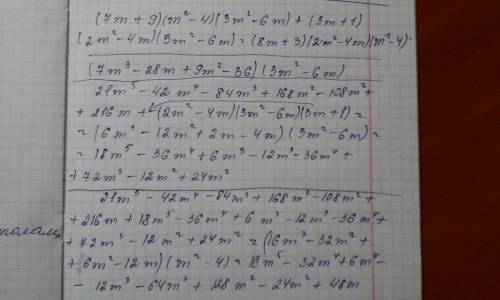 (7m + 9)(m² - 4)(3m² - 6m) + (3m + 1)
(2m² - 4m)(3m² - 6m) = (8m + 3)(2m² - 4m)(m² - 4)
(7m³ - 28m + 9m² - 36)(3m² - 6m)
21m⁵ - 42m⁴ - 84m³ + 168m² - 108m² +
+ 216m + (2m² - 4m)(3m² - 6m)(3m + 1) =
= (6m³ - 12m² + 2m - 4m)(3m² - 6m) =
= 18m⁵ - 36m⁴ + 6m³ - 12m³ - 36m⁴ +
+ 72m³ - 12m² + 24m²
21m⁵ - 42m⁴ - 84m³ + 168m² - 108m² +
+ 216m + 18m⁵ - 36m⁴ + 6m³ - 12m³ - 36m⁴ +
+ 72m³ - 12m² + 24m² = (16m³ - 32m² +
+ 6m² - 12m)(m² - 4) = 16m⁵ - 32m⁴ + 6m⁴ -
- 12m³ - 64m³ + 128m² - 24m² + 48m